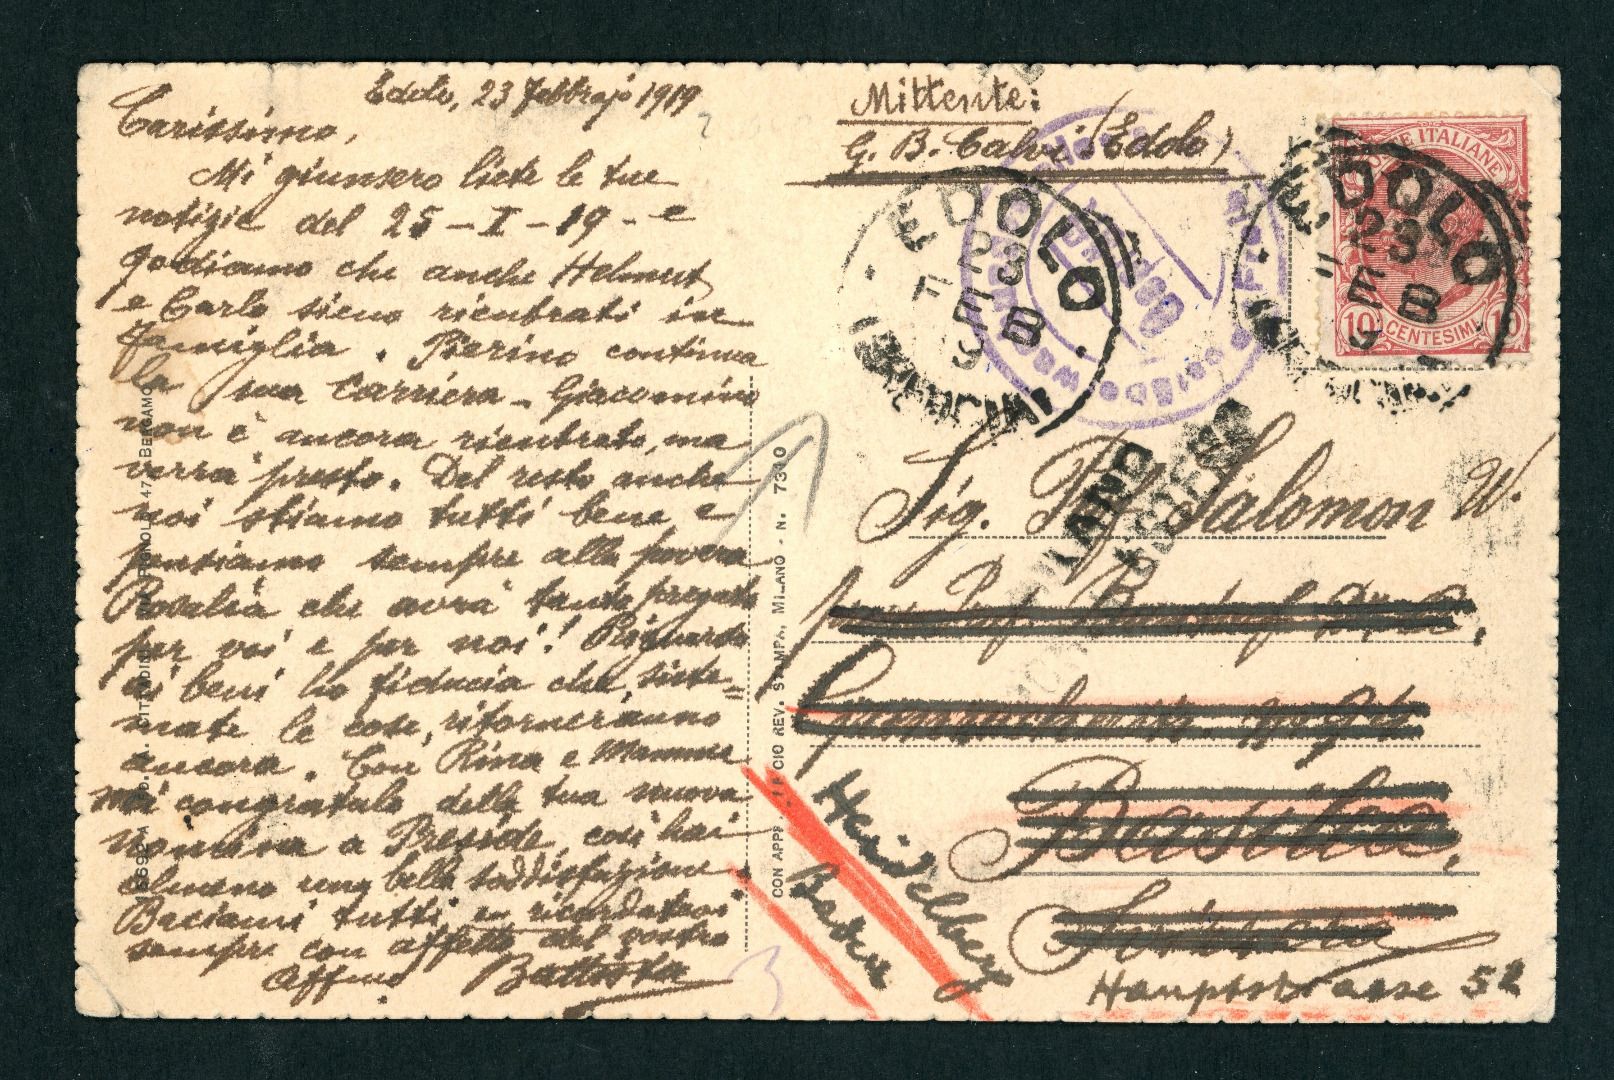 Edolo, 23 Febbrajo 1919
Carissimo,
Mi giunsero liete le tue
notizie del 25 - I - 19 - e
godiamo che anche Helmut
e Carlo sieno rientrati in
famiglia. Pierino continua
la sua carriera - Giacomino
non è ancora rientrato, ma
verrà presto. Del resto anche
noi stiamo tutti bene, e
pensiamo sempre alla povera
Rosalia che avrà tanto pregato
per voi e per noi! Riguardo
ai beni ho fiducia che, siste=
mate le cose, ritorneranno
ancora. Con Rina e Mamma
mi congratulo della tua nuova
nomina a Preside, così hai
almeno una bella soddisfazione
Baciami tutti e ricordatevi
sempre con affetto del vostro
affmo Battista
CON APP. UFFICIO REV. STAMPA, MILANO - N. 7310
Mittente:
G. B. Calvi (Edolo)
EDOLO
23 FEB
(BRESCIA)
EDOLO
23 FEB
POSTE ITALIANE
10 CENTESIMI 10
MILANO
ESTERO
Sig. Salomon W.
Basilea,
Svizzera
Heidelberg
Baden
Hauptstrasse 52